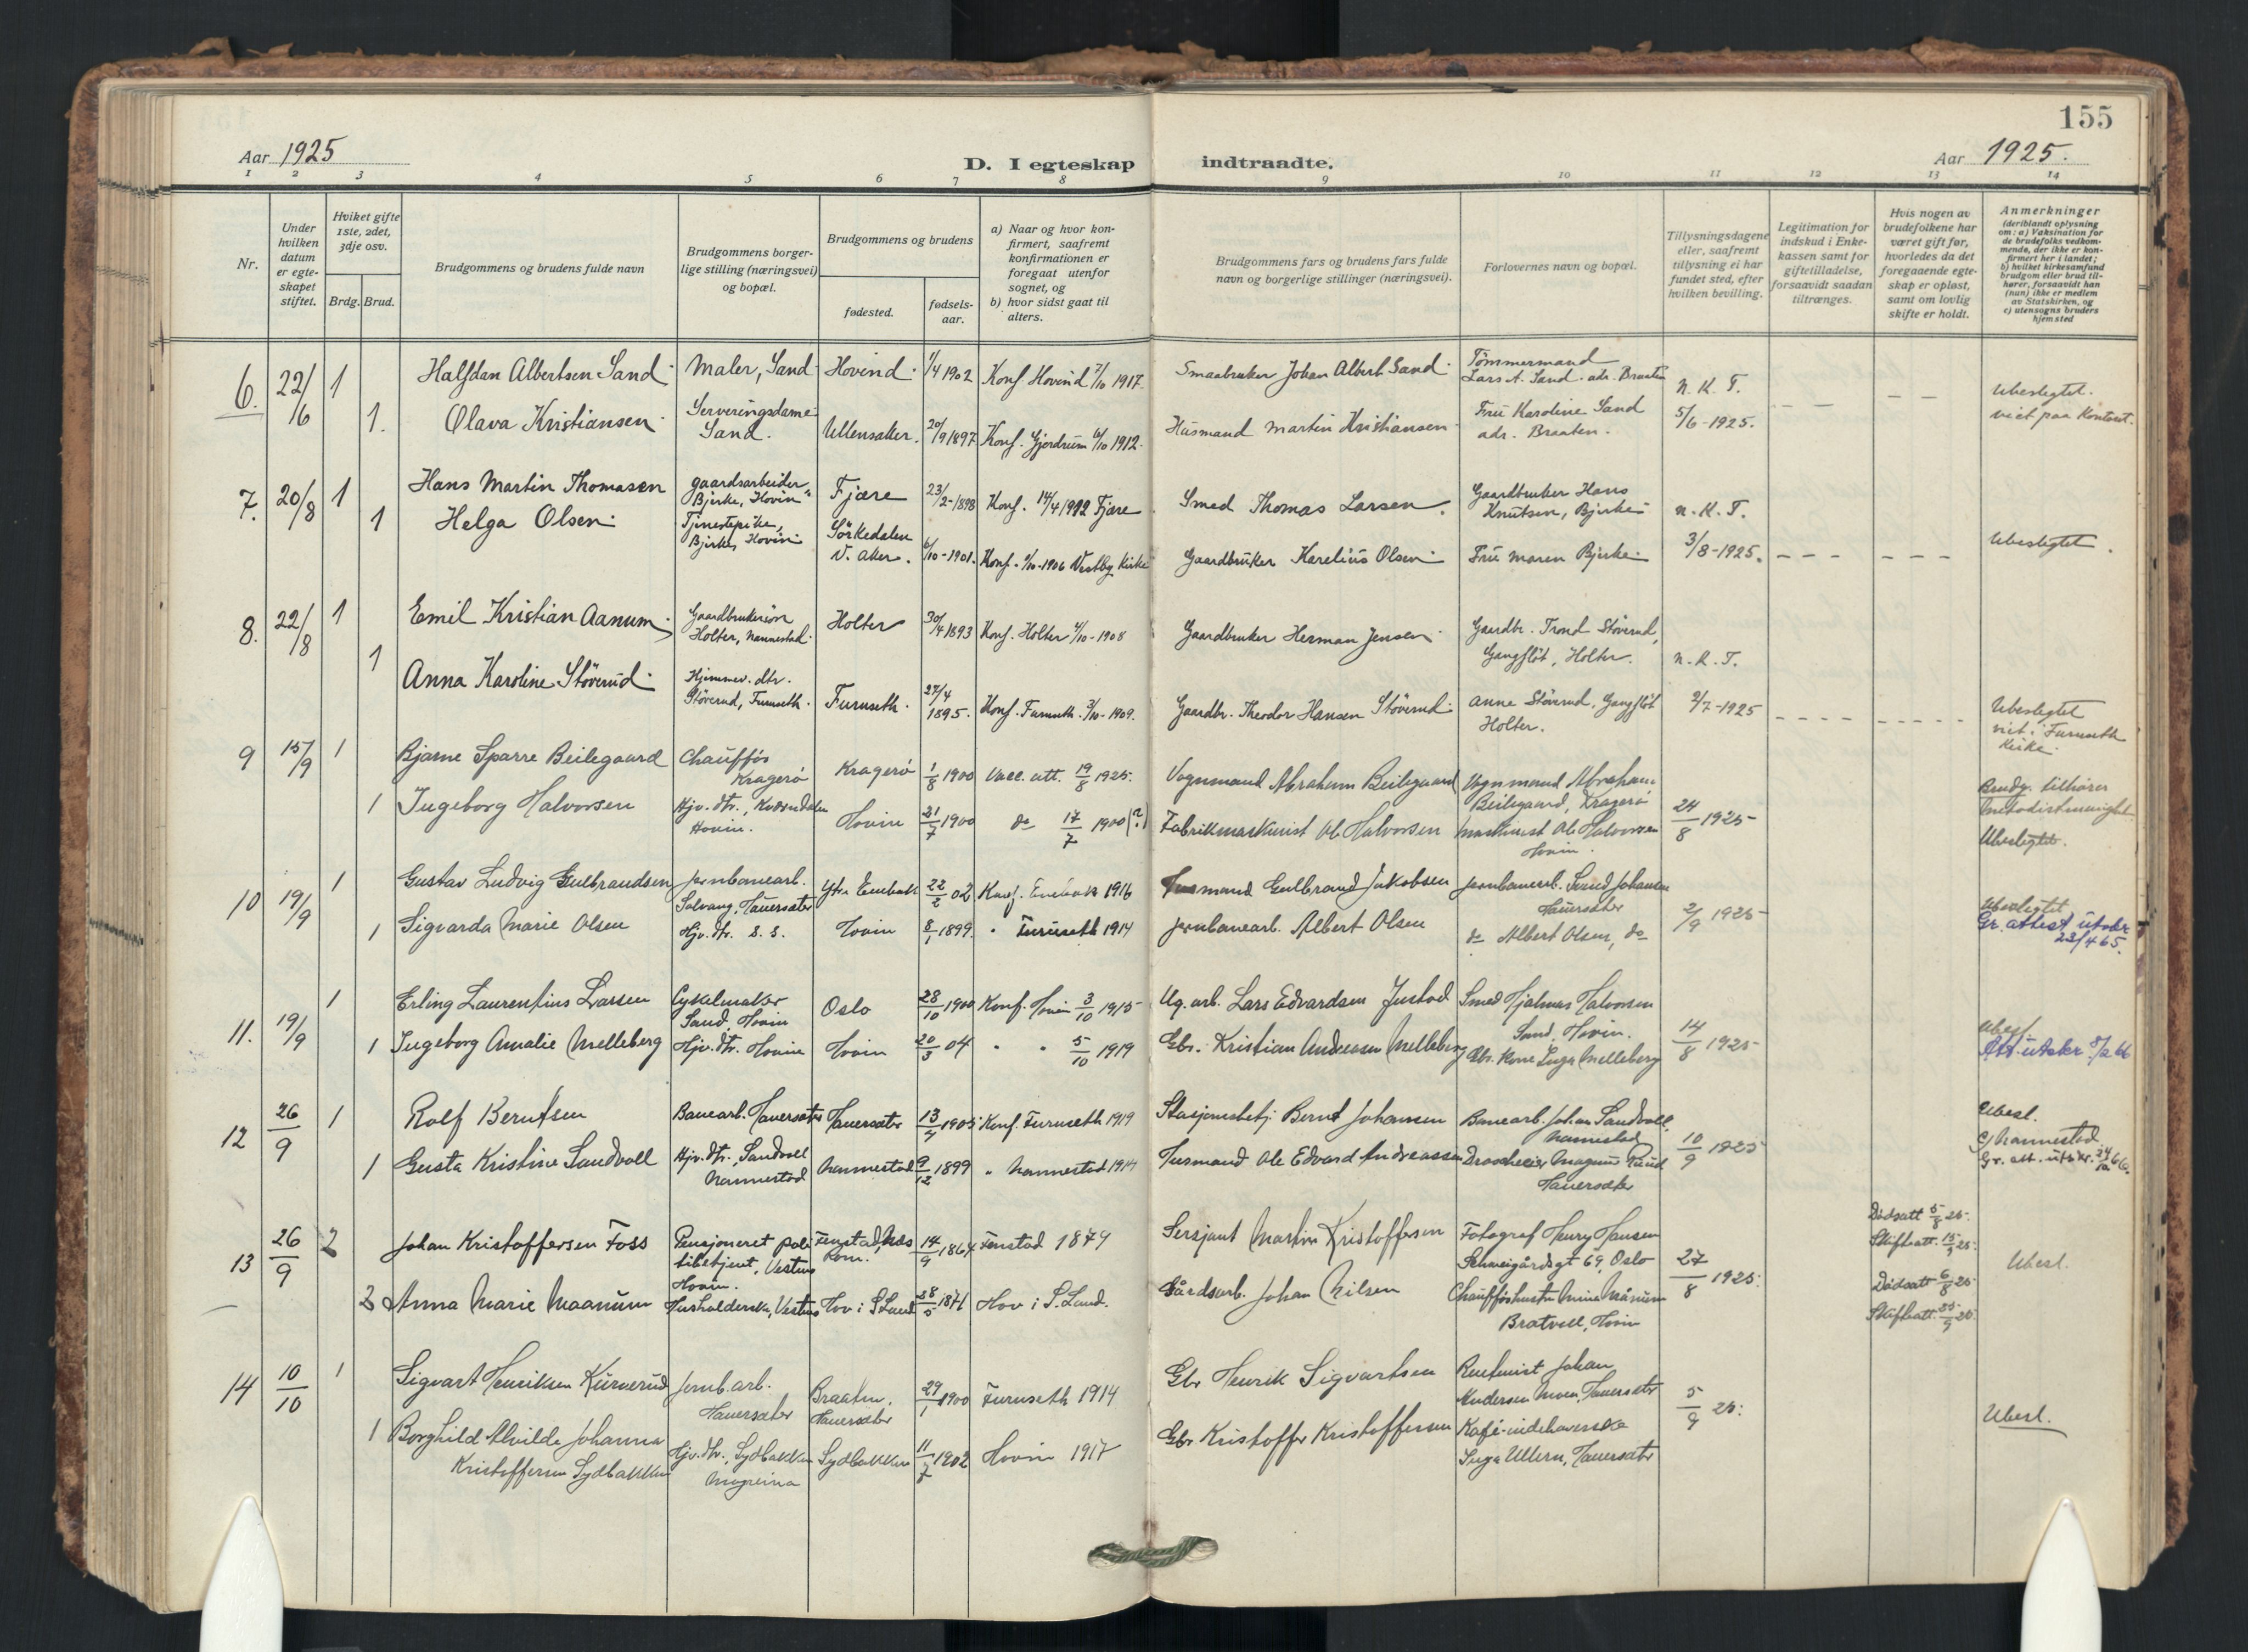 155
Aar 1925
D. I egteskap indtraadte.
Aar 1925.
1 2 3 4 5 6 7 8 9 10 11 12 13 14
Nr.
Under hvilken datum er egteskapet stiftet.
Hviket gifte 1ste, 2det, 3dje osv.
Brdg. Brud.
Brudgommens og brudens fulde navn
Brudgommens borgerlige stilling (næringsvei) og bopæl.
Brudgommens og brudens
fødested.
fødselsaar.
a) Naar og hvor konfirmert, saafremt konfirmationen er foregaat utenfor sognet, og
b) hvor sidst gaat til alters.
Brudgommens fars og brudens fars fulde navn og borgerlige stillinger (næringsvei).
Forlovernes navn og bopæl.
Tillysningsdagene eller, saafremt tillysning ei har fundet sted, efter hvilken bevilling.
Legitimation for indskud i Enkekassen samt for giftetilladelse, forsaavidt saadan tiltrænges.
Hvis nogen av brudefolkene har været gift før, hvorledes da det foregaaende egteskap er opløst, samt om lovlig skifte er holdt.
Anmerkninger (deriblandt oplysning om: a) Vaksination for de brudefolks vedkommende, der ikke er konfirmert her i landet; b) hvilket kirkesamfund brudgom eller brud tilhører, forsaavidt han (hun) ikke er medlem av Statskirken, og c) utensogns bruders hjemsted
6. 22/6 1 Halfdan Albertsen Sand Maler, Sand Hovind 1/4 1902 Konf. Hovind 7/10 1917. Smaabruker Johan Albert Sand Tömmermand Lars A. Sand. adr. Braaten n. K. T. Ubeslegtet.
1. Olava Kristiansen Serveringsdame Sand. Ullensaker. 20/9 1897 Konf. Gjerdrum 6/10 1912. Husmand Martin Kristiansen Fru Karoline Sand adr. Braaten. 5/6-1925. viet paa Kontoret.
7. 20/8 1 Hans Martin Thomasen gaardsarbeider Bjerke, Hovin Fjære 23/2-1898 Konf. 14/4 1912 Fjære Smed Thomas Larsen Gaardbruker Hans Knutsen, Bjerke n. K. T.
1 Helga Olsen Tjenestepike, Bjerke, Hovin Sörkedalen V. Aker. 6/10-1901. Vestby Kirke Gaardbruker Karelius Olsen Fru Maren Bjerke 3/8-1925. Ubeslegtet.
8. 22/8 1 Emil Kristian Aanum Gaardbrukersön Holter, Nannestad. Holter 30/4 1893 Konf. Holter 4/10-1908 Gaardbruker Herman Jensen Gaardbr. Trond Stöverud, Gangflöt, Holter. n. K. T.
1 Anna Karoline Stöverud Hjemmev. dtr. Stöverud, Furuseth. Furuseth. 27/4 1895. Konf. Furuseth. 3/10-1909. Gaardbr. Theodor Hansen Stöverud Anne Stöverud, Gangflöt Holter. 2/7-1925 Ubeslegtet viet i Furuseth Kirke.
9 15/9 1 Bjarne Sparre Beilegaard Chauffös Kragerö Kragerö 1/8 1900 Vacc. att. 19/8 1925. Vognmand Abraham Beilegaard Vognmand Abraham Beilegaard, Kragerö Brudg. tilhører
1 Ingeborg Halvorsen Hjv. dtr., Kværndalen Hovin. Hovin 21/7 1900 do 17/7 1900 (?) Fabrikmaskinist Ole Halvorsen Maskinist Ole Halvorsen Hovin. 24/8 1925 Ubeslegtet.
10 19/9 1 Gustav Ludvig Gulbrandsen Jernbanearb. Solvang, Hauersæter Ytre Enebak 22/2 02 Konf. Enebak 1916 Gulbrand Jakobsen Jernbanearb. Svend Johansen Hauersæter
1 Sigvarda Marie Olsen Hjv. dtr. s. s. Hovin 8/1 1899. " Furuseth 1914 Jernbanearb. Albert Olsen do Albert Olsen, do 2/9 1925 Ubeslegtet Gr. attest utskr. 23/4 65.
11. 19/9 1 Erling Laurentius Larsen Cykelmaker Sand, Hovin Oslo 28/10 1900 Konf. Hovin 3/10 1915 Lars Edvardsen Smed Hjalmar Halvorsen Sand, Hovin.
1 Ingeborg Amalie Melleberg Hjv. dtr. Hovin Hovin 20/3 04 " " 5/10 1919 Gbr. Kristian Andersen Melleberg Gbr. kone Inga Melleberg 14/8 1925 Ubesl. Att. utskr. 8/2 66
12 26/9 1 Rolf Berntsen Banearb. Hauersæter Hauersæter 13/4 1903 Konf. Furuseth 1919 Stasjonsbetj. Bernt Johansen Banearb. Johan Sandvoll, Nannestad Ubesl.
1 Gusta Kristine Sandvoll Hjv. dtr., Sandvoll Nannestad Nannestad 9/12 1899 " Nannestad 1914 Turmand Ole Edvard Andreassen Droscheeier Magnus Ruud Hauersæter 10/9 1925 c/ Nannestad Gr. att. utskr. 24/10 66.
13 26/9 2 Johan Kristoffersen Foss Pensjoneret politibetjent, Vestus Hovin. Fenstad, Nes Rom. 14/9 1864 Fenstad 1879 Sersjant Martin Kristoffersen Fotograf Henry Hansen Schweigårdsgt 69, Oslo Dødsatt 5/8 25. Skifteatt. 15/9 25.
2 Anna Marie Maanum Husholderske, Vestus Hov i S. Land 28/5 1871 Hov i S. Land. Gårdsarb. Johan Nilsen Chaufförhustru Mina Månum Bratvoll, Hovin 27/8 1925. Dødsatt 6/8 25. Skifteatt. 25/9 25. Ubesl.
14 10/10 1 Sigvart Henriksen Kurverud Jernb.arb. Hauersæter Braaten, Hauersæter 29/1 1900 Furuseth 1914 Gbr Henrik Sigvartsen Johan Andersen Moen, Hauersæter
1 Borghild Alvilde Johanna Kristoffersen Sydbakken Hjv. dtr., Sydbakken Mogreina Sydbakken 11/7 1902 Hovin 1917 Gbr. Kristoffer Kristoffersen Kafé-indehaverske Inga Ullern, Hauersæter 5/9 25. Ubesl.